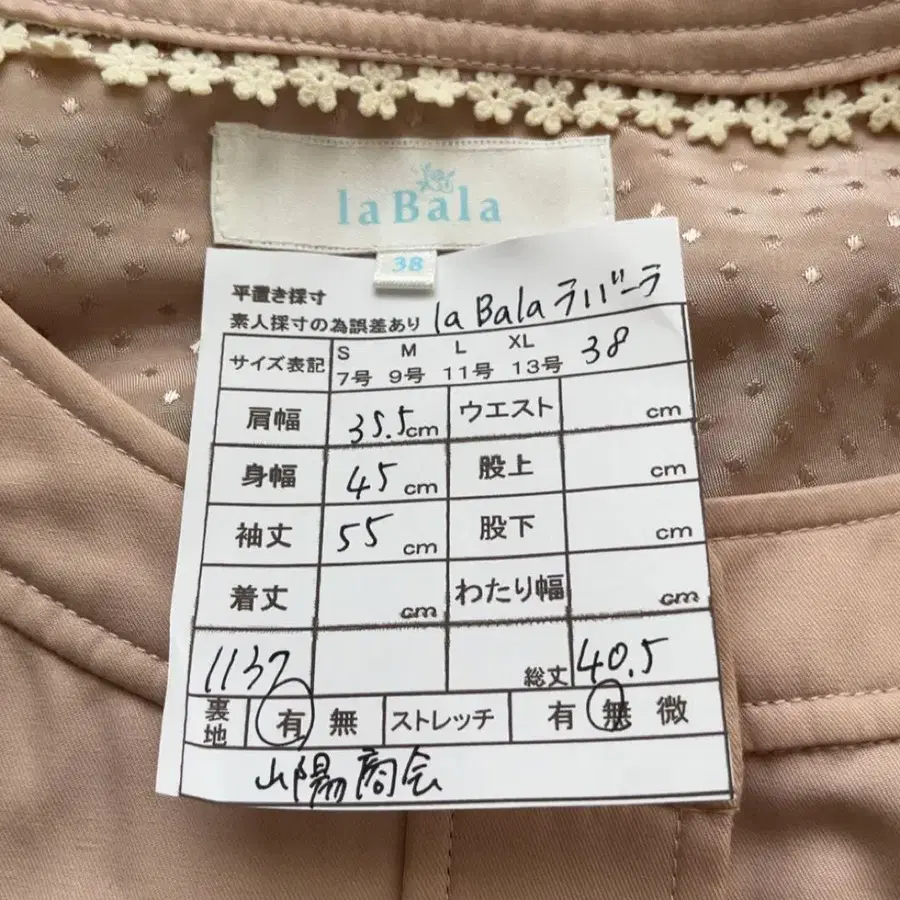 la Bala
38
平置き採寸
素人採寸の為誤差あり la Bala ラバーラ
サイズ表記 S M L XL 38
7号 9号 11号 13号
肩幅 35.5cm ウエスト cm
身幅 45 cm 股上 cm
袖丈 55 cm 股下 cm
着丈 cm わたり幅 cm
1137 総丈 40.5
裏地 有 無 ストレッチ 有 無 微
山陽商会